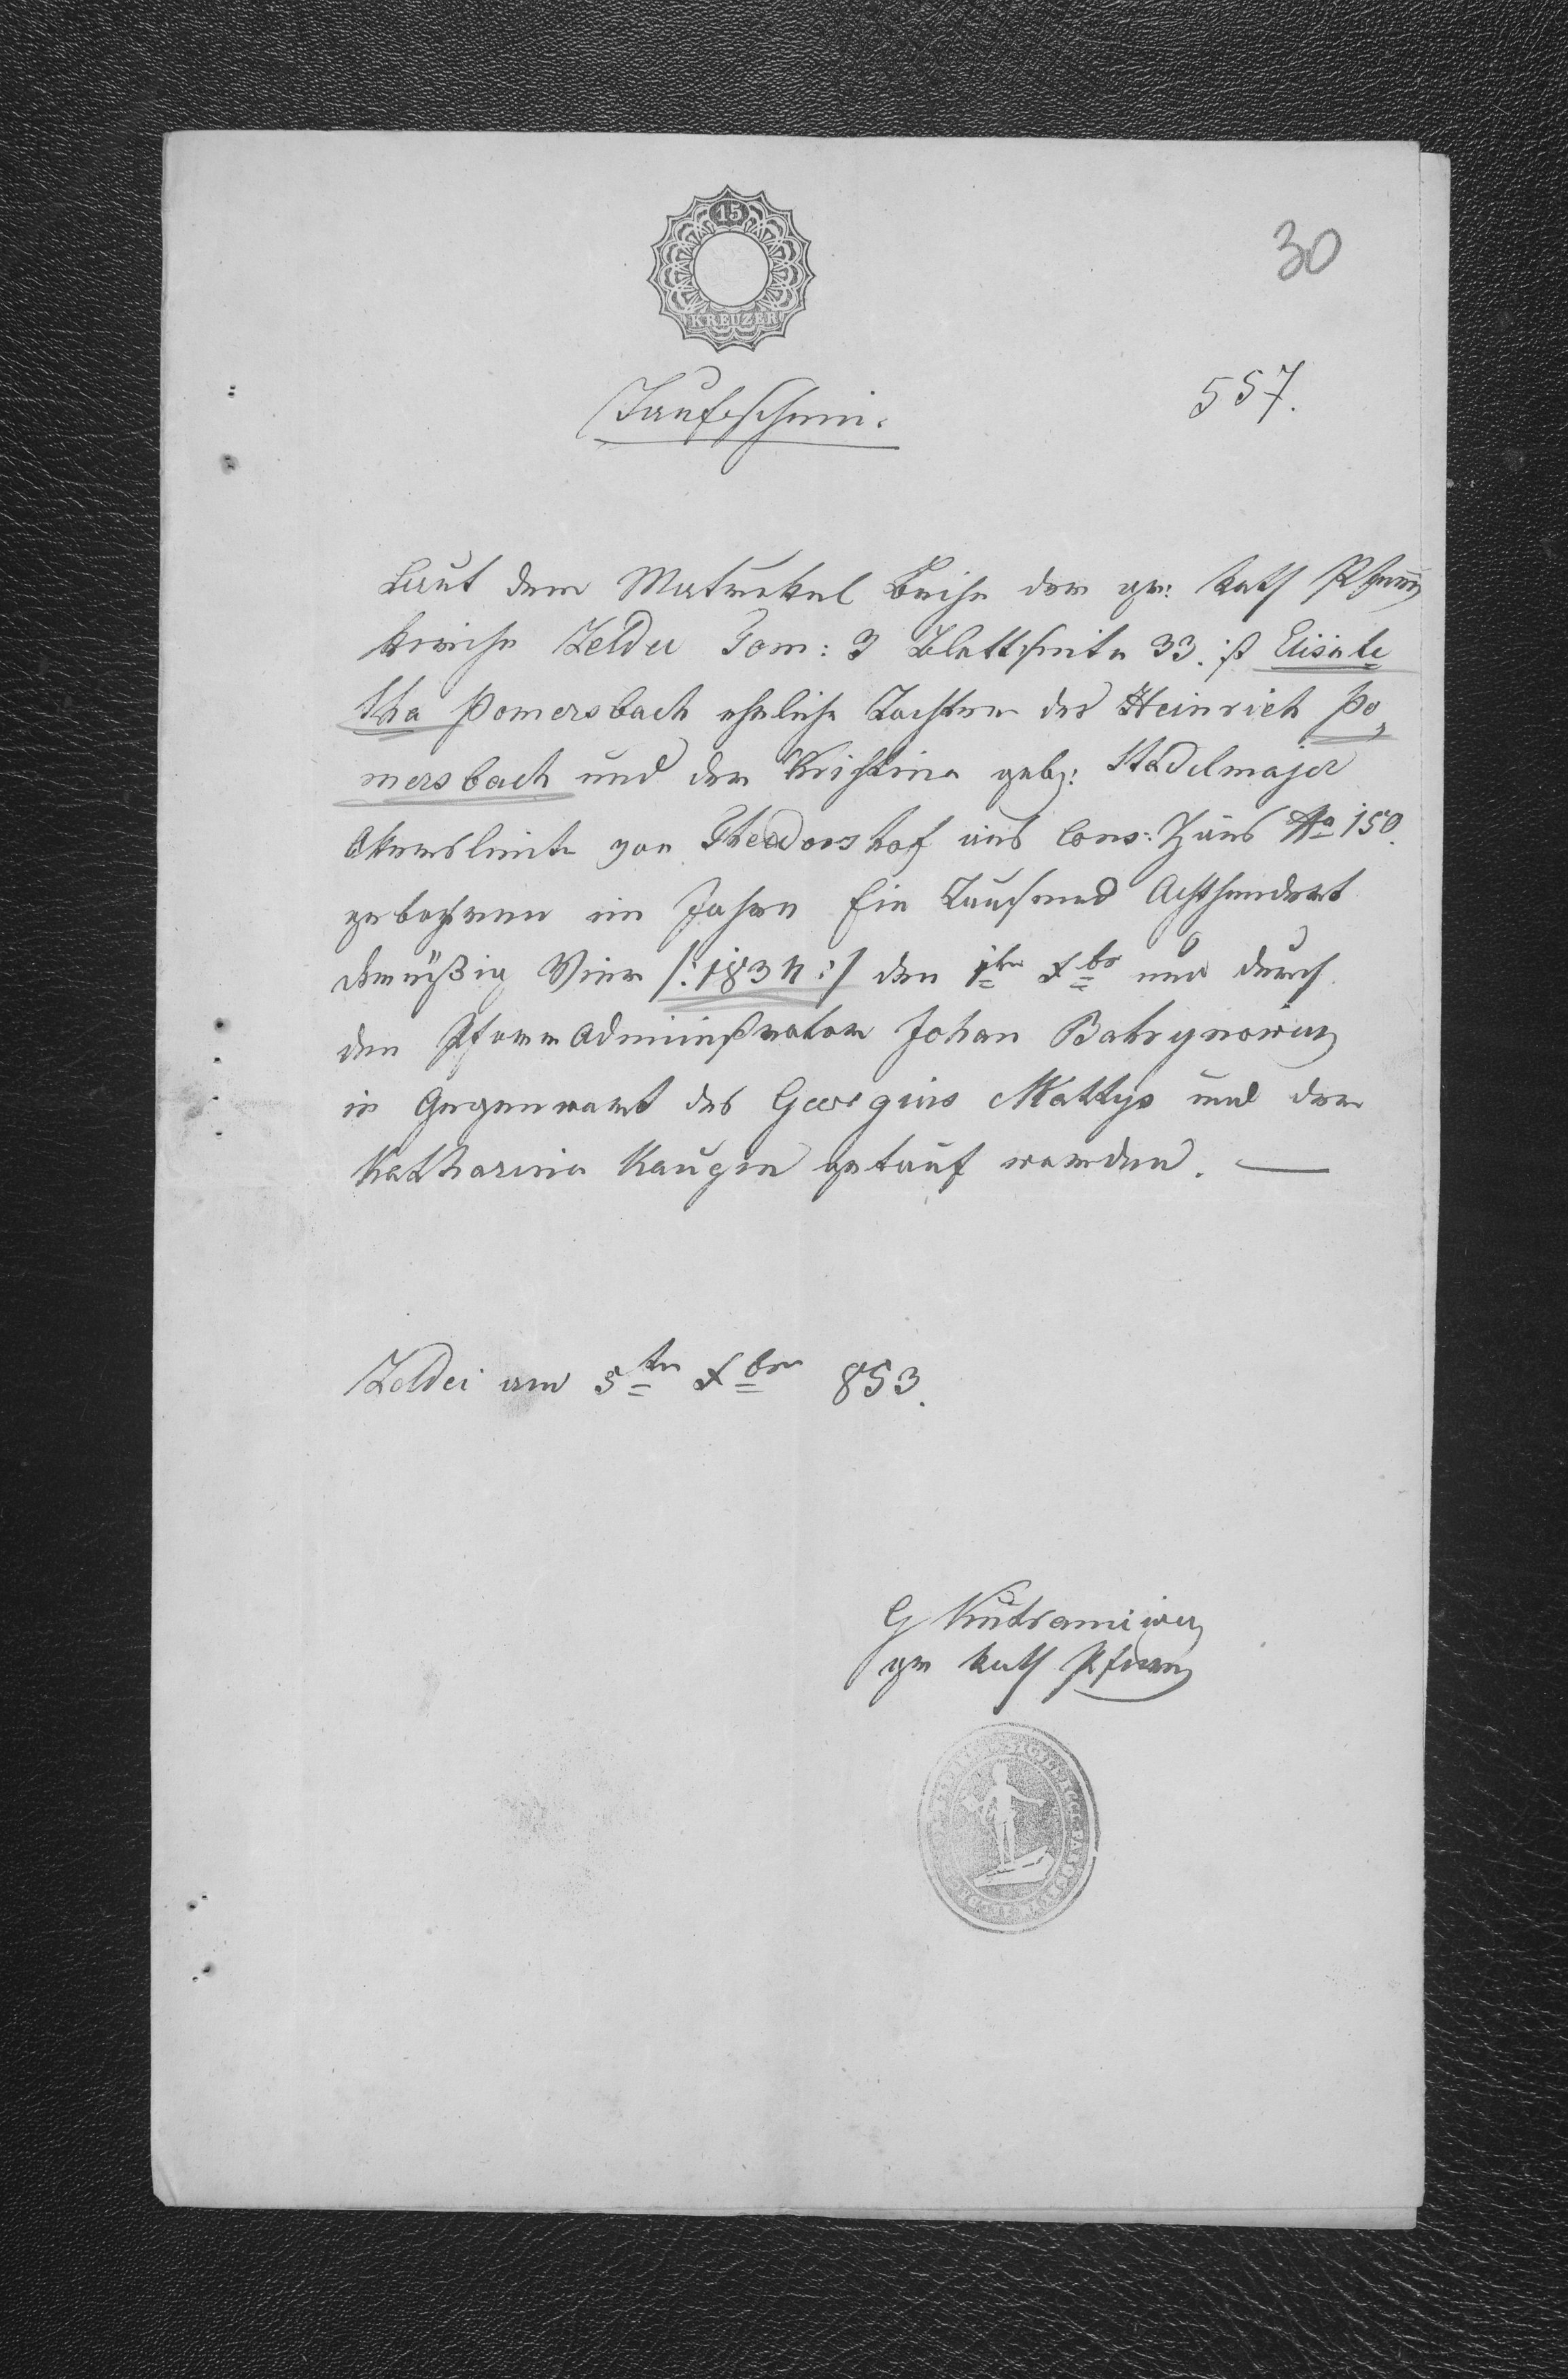 15
KREUZER
30
557.
Taufschein.
Laut dem Matrikel Buche der gr: kath Pfarr
kirche Zeldec Tom: 3 Blattseite 33. ist Elisabe
tha Pomersbach eheliche Tochter des Heinrich Po,
mersbach und der Kristina geb: Stadelmajer
Akersleute von Theodorshof aus Cons: Haus No 150.
gebohren im Jahre Ein Tausend Achthundert
dreußig Vier /:1834:/ den 1ten Xbr und durch
den Pfarr Administrator Johan Batrynowicz
in Gegenwart des Georgius Mattys und der
Katharina Kaugin getauf worden. —
Zoldei am 5ten Xber 853.
G
gr kath Pfarr